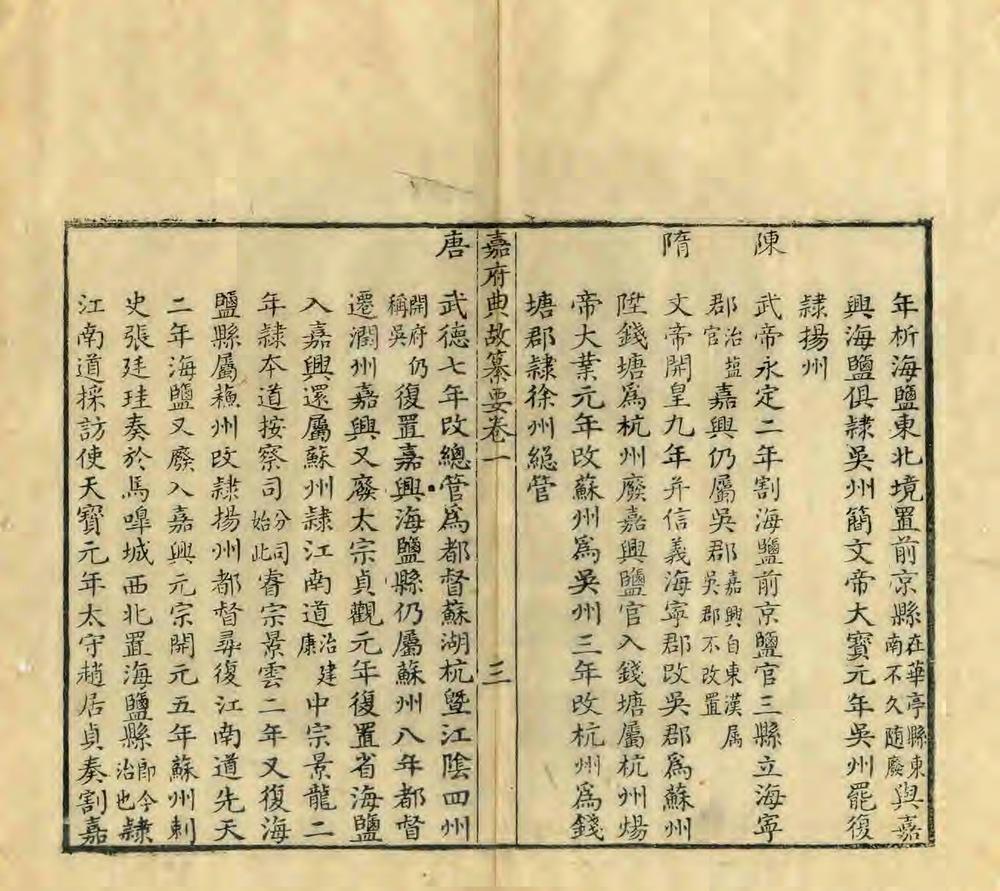 年析海鹽東北境置前京縣在華亭縣東南不久随廢與嘉
興海鹽俱隸吳州簡文帝大寶元年吳州罷復
隸揚州
陳 武帝永定二年割海鹽前京鹽官三縣立海寧
郡治鹽官嘉興仍屬吳郡嘉興自東漢属吳郡不改置
隋 文帝開皇九年并信義海寧郡改吳郡爲蘇州
陞錢塘爲杭州廢嘉興鹽官入錢塘屬杭州煬
帝大業元年改蘇州爲吳州三年改杭州爲錢
塘郡隸徐州緫管
嘉府典故纂要卷一 三
唐 武德七年改總管爲都督蘇湖杭暨江陰四州
開府仍稱吳復置嘉興海鹽縣仍屬蘇州八年都督
遷潤州嘉興又廢太宗貞觀元年復置省海鹽
入嘉興還屬蘇州隸江南道治建康中宗景龍二
年隸本道按察司分司始此睿宗景雲二年又復海
鹽縣屬蘓州改隸揚州都督尋復江南道先天
二年海鹽又廢入嘉興元宗開元五年蘇州刺
史張廷珪奏於馬嘷城西北置海鹽縣即今治也隸
江南道採訪使天寶元年太守趙居貞奏割嘉